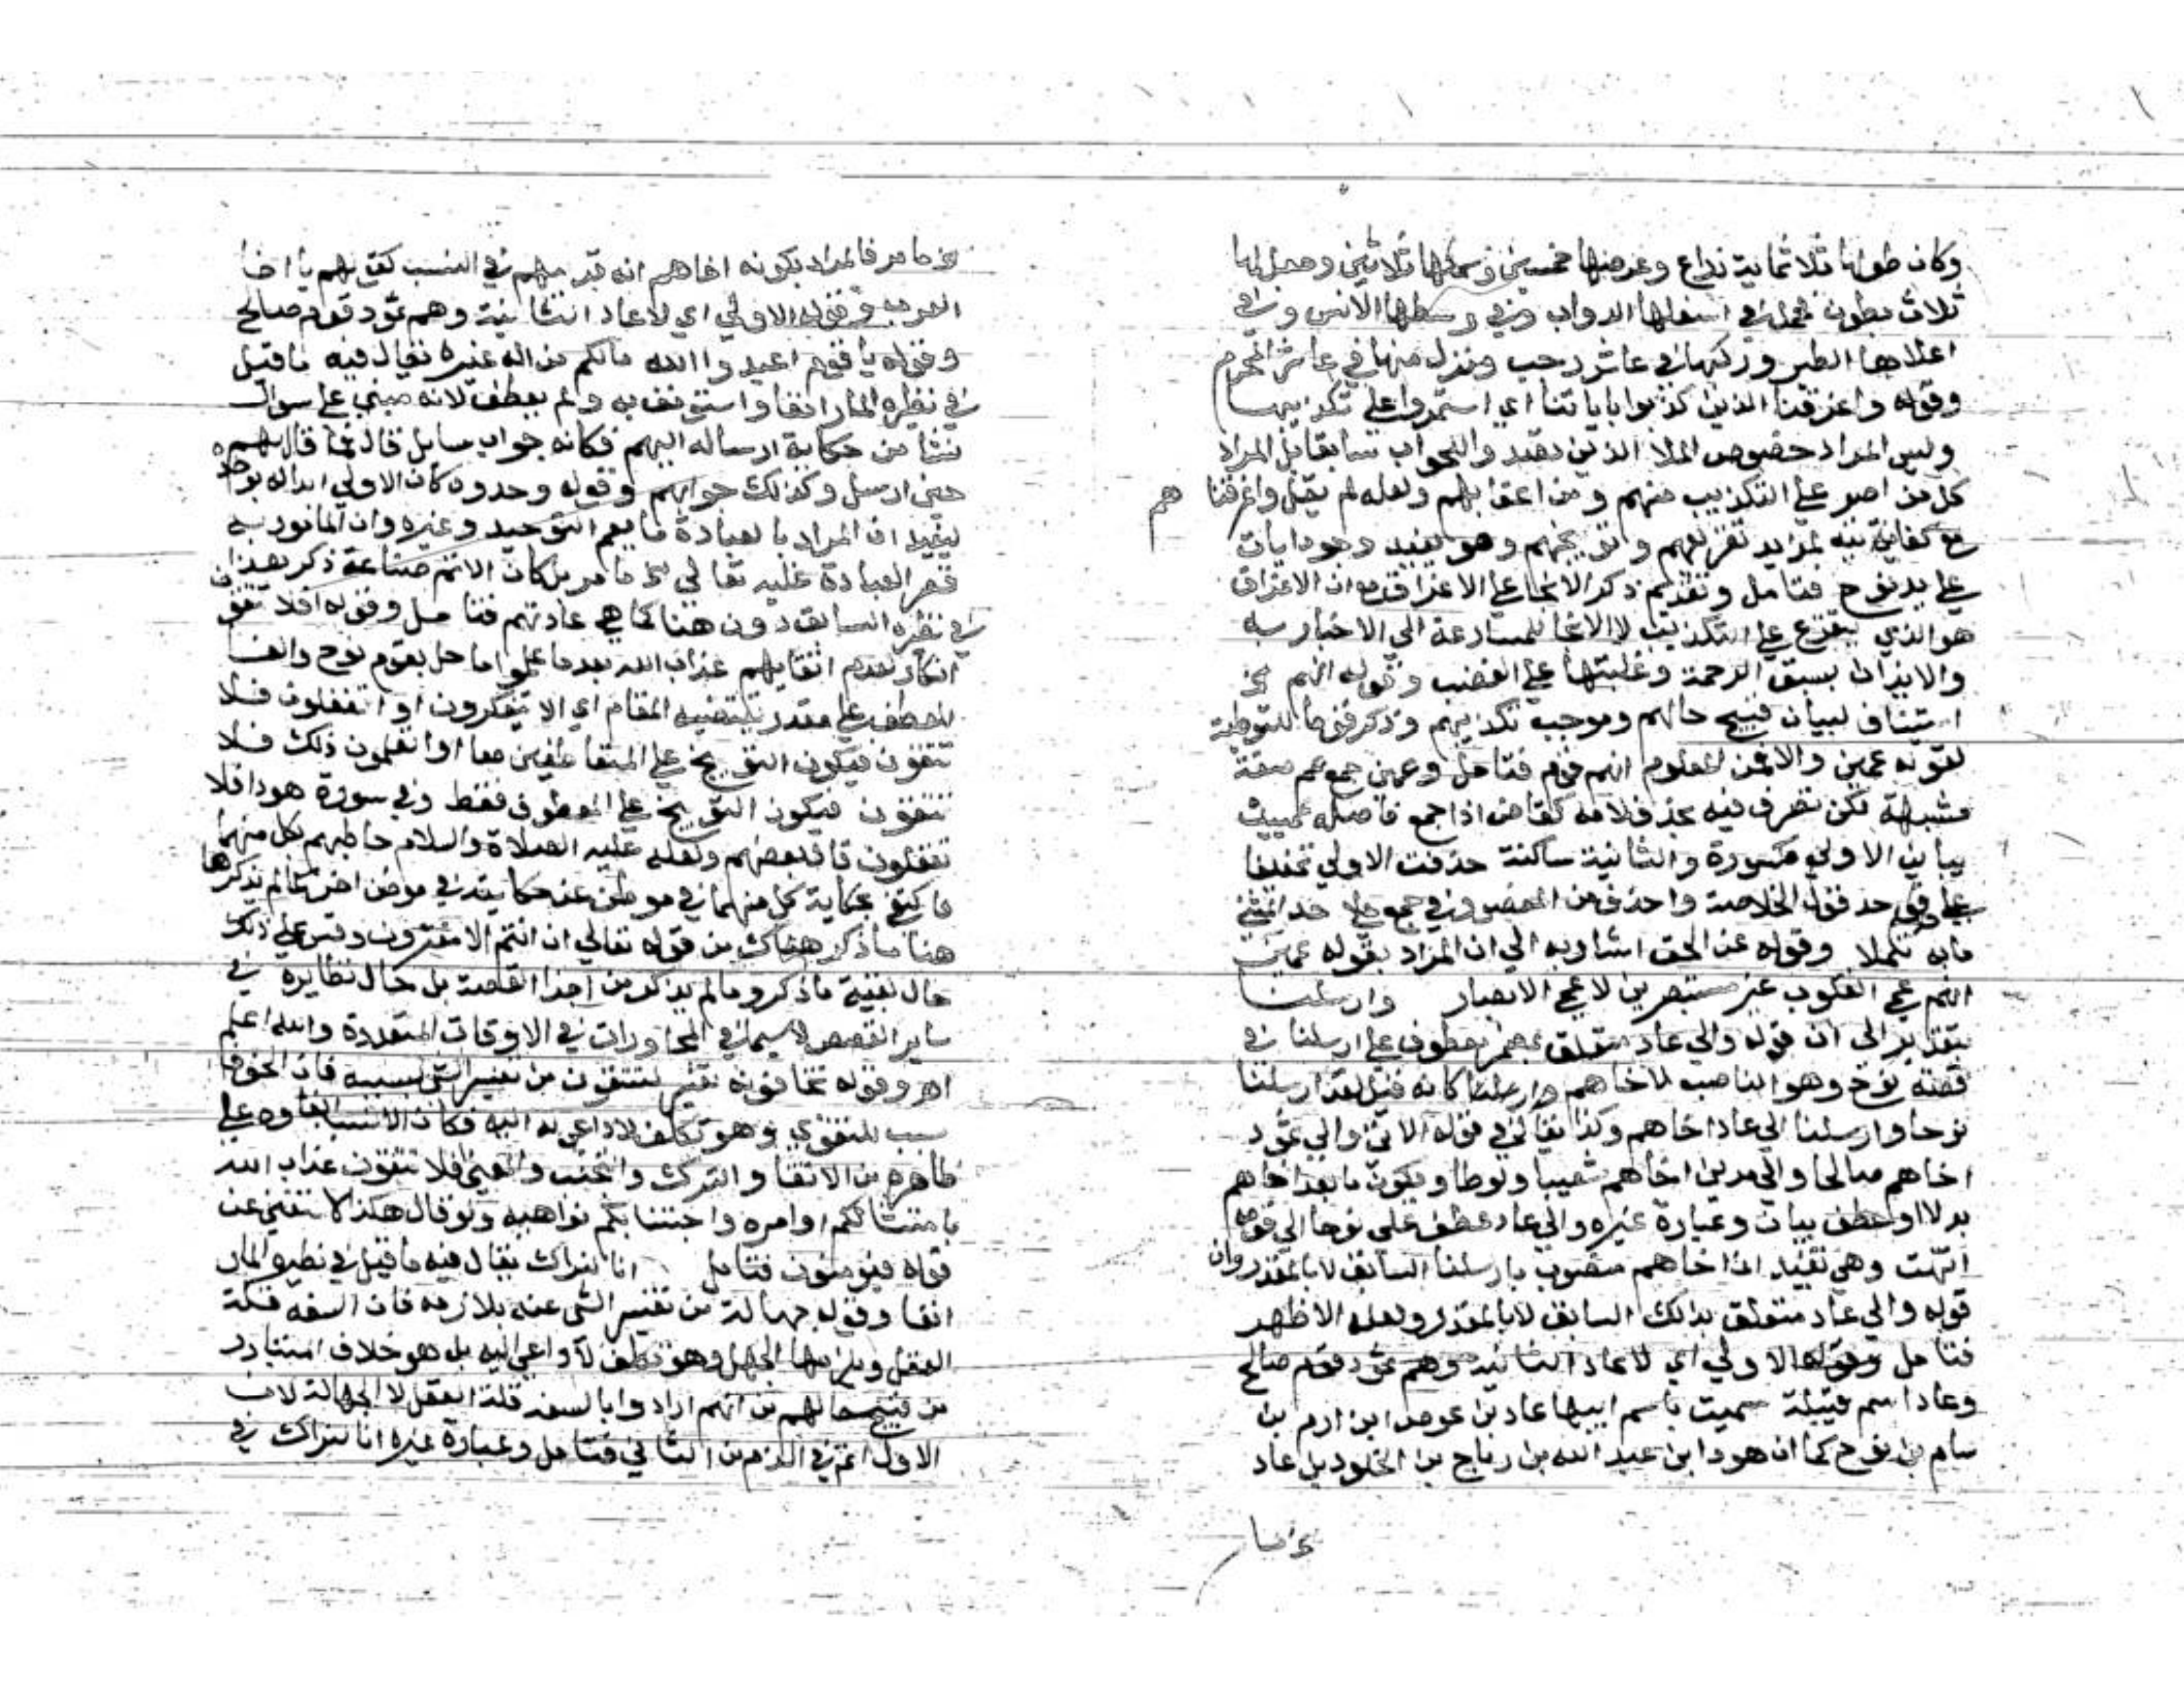 وكان طولها ثلاثماية ذراع وعرضها خمسين وسمكها ثلاثين وجعل لها
ثلاث بطون فحمل في اسفلها الدواب وفي وسطها الانس وفي
اعلاها الطير وركبها في عاشر رجب ونزل منها في عاشر المحرم
وقوله واغرقنا الذين كذبوا باياتنا اي استمروا على تكذيبها
وليس المراد خصوص الملا الذين تصدوا للجواب سابقا بل المراد
كل من اصر على التكذيب منهم ومن اعقابهم ولعله لم يقل واغرقنا هم
مع كفايته لمزيد تقريعهم وتوبيخهم وهو يفيد وجود ايات
على يد نوح فتامل وتقديم ذكر الانجا على الاغراق مع ان الاغراق
هو الذي يتفرع على التكذيب لا الانجا للمسارعة الى الاخبار به
والايذان بسبق الرحمة وغلبتها على الغضب وقوله انهم الخ
استيناف لبيان قبيح حالهم وموجب تكذيبهم وذكر قوما للتوطية
لقوله عمين والا فمن المعلوم انهم قوم فتامل وعمين جمع عم صفة
مشبهة لكن تصرف فيه بحذف لامه كقاض اذا جمع فاصله عميين
بيايين الاولى مكسورة والثانية ساكنة حذفت الاولى تخفيفا
على حد قول الخلاصة واحذف من المقصور في جمع على حد المثنى
ما به تكملا وقوله عن الحق اشار به الى ان المراد بقوله عمين
انهم عمي القلوب غير مستبصرين لا عمي الابصار وارسلنا
بتقديره الى ان قوله والى عاد متعلق بمضمر معطوف على ارسلنا في
قصة نوح وهو الناصب لاخاهم وارسلنا كانه قيل لقد ارسلنا
نوحا وارسلنا الى عاد اخاهم وكذا يقال في قوله الاتي والى ثمود
اخاهم صالحا والى مدين اخاهم شعيبا ولوطا ويكون ما بعد اخاهم
بدلا او عطف بيان وعبارة غيره والى عاد عطف على نوحا الى قومه
انتهت وهي تفيد ان اخاهم منصوب بارسلنا السابق لا بالمقدر وان
قوله والى عاد متعلق بذلك السابق لا بالمقدر ولعله الاظهر
فتامل وقوله الاولى اي لا عاد الثانية وهم ثمود قوم صالح
وعاد اسم قبيلة سميت باسم ابيها عاد بن عوص ابن ارم بن
سام بن نوح كما ان هودا بن عبد الله بن رباح بن الخلود بن عاد
مر فالمراد بكونه اخاهم انه قريبهم في النسب كقولهم يا اخا
العرب وقوله الاولى اي لا عاد الثانية وهم ثمود قوم صالح
وقوله يا قوم اعبدوا الله مالكم من اله غيره يقال فيه ما قيل
في نظيره المار انفا واستونف به ولم يعطف لانه مبني على سوال
نشا من حكاية ارساله اليهم فكانه جواب سايل قال فما قال لهم
حين ارسل وكذلك جوابهم وقوله وحدوه كان الاولى ابداله بوحد
ليفيد ان المراد بالعبادة ما يعم التوحيد وغيره وان المامور به
قصر العبادة عليه تعالى كما مر بل كان الاتم صناعة ذكر هذا
في نظيره السابق دون هنا كما هي عادتهم فتامل وقوله افلا تتقون
انكار لعدم اتقايهم عذاب الله بعد ما علموا ما حل بقوم نوح والفا
للعطف على مقدر يقتضيه المقام اي الا تتفكرون او اتغفلون فلا
تتقون فيكون التوبيخ على المتعاطفين معا او اتعلمون ذلك فلا
تتقون فيكون التوبيخ على المعطوف فقط وفي سورة هود افلا
تعقلون قال بعضهم ولعله عليه الصلاة والسلام خاطبهم بكل منهما
فاكتفى بحكاية كل منهما في موطن عن حكايته في موطن اخر كما لم يذكر ها
هنا ما ذكر هناك من قوله تعالى ان انتم الا مفترون وقس على ذلك
حال بقية ما ذكر وما لم يذكر من اجزا القصة بل حال نظايره في
ساير القصص لاسيما في المحاورات في الاوقات المتعددة والله اعلم
اهـ وقوله تخافونه تفسير لتتقون من تفسير الشي بسببه فان الخوف
سبب للتقوى وهو تكلف لا داعي له اليه فكان الانسب ابقاوه على
ظاهره من الاتقا والترك والتجنب والمعنى افلا تتقون عذاب الله
بامتثالكم اوامره واجتنابكم نواهيه ولو قال هكذا لاستغنى عن
قوله فتومنون فتامل انا لنراك يقال فيه ما قيل في نظيره المار
انفا وقوله جهالة من تفسير الشي عنه بلازمه فان السفه قلة
العقل ويلزمها الجهل وهو تكلف لا داعي اليه بل هو خلاف المتبادر
من قبيح حالهم من انهم ارادوا بالسفه قلة العقل لا الجهالة لان
الاول اتم في الذم من الثاني فتامل وعبارة غيره انا لنراك في